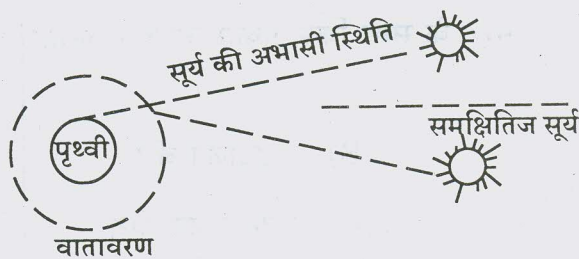 सूर्य की अभासी स्थिति
समक्षितिज सूर्य
पृथ्वी
वातावरण